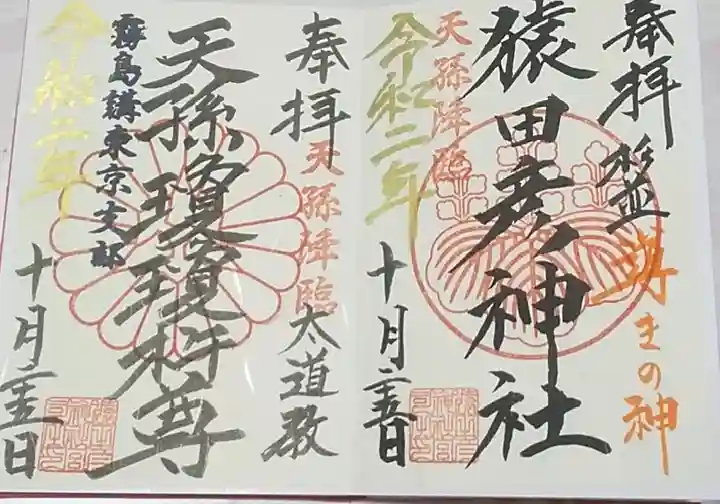 奉拝
導きの神
猿田彦神社
天孫降臨
令和二年
十月二十五日
奉拝
天孫降臨
太道教
天孫瓊瓊杵尊
霧島講東京支部
令和二年
十月二十五日